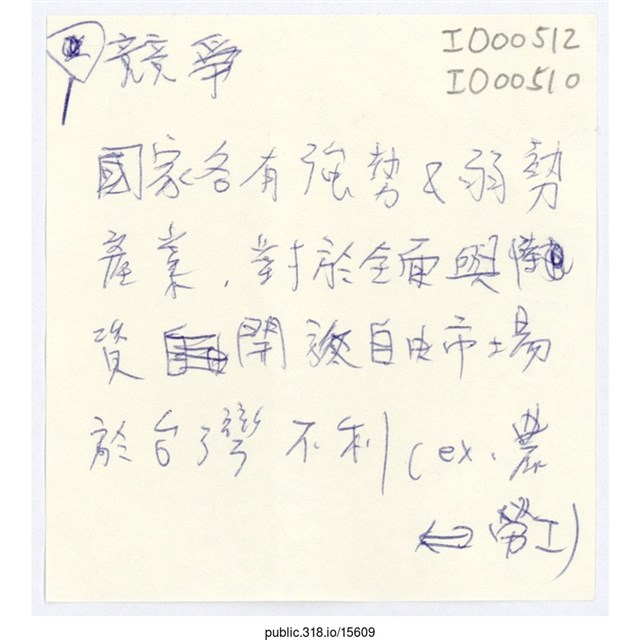 競爭
IO00512
IO00510
國家各有強勢&弱勢
產業，對於全面與陸
資開放自由市場
於台灣不利(ex.農
勞工)
public.318.io/15609